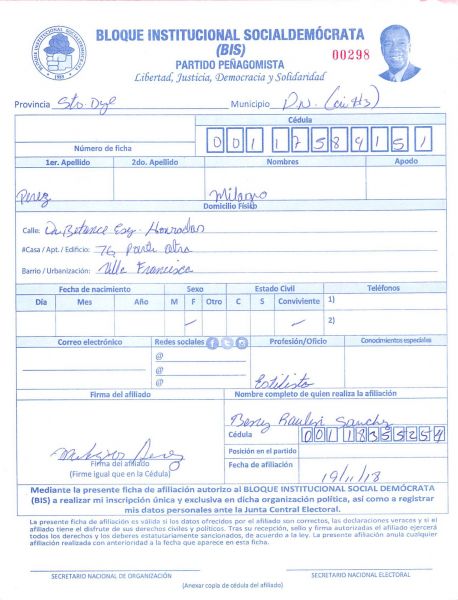 BLOQUE INSTITUCIONAL SOCIALDEMÓCRATA
(BIS)
PARTIDO PEÑAGOMISTA
00298
Libertad, Justicia, Democracia y Solidaridad
Provincia Municipio D.N.
Cédula
Número de ficha 0 0 1 1 7 5 8 9 1 5 1
1er. Apellido 2do. Apellido Nombres Apodo
Perez Milagro
Domicilio Físico
Calle: Betance Esq. Honradez
#Casa / Apt. / Edificio: 76 parte atra
Barrio / Urbanización: Villa Francisca
Fecha de nacimiento Sexo Estado Civil Teléfonos
Día Mes Año M F Otro C S Conviviente 1)
2)
Correo electrónico Redes sociales Profesión/Oficio Conocimientos especiales
@
@
@
Estilista
Firma del afiliado Nombre completo de quien realiza la afiliación
Sanchez
Cédula 0 0 1 1 8 3 5 5 2 5 4
Posición en el partido
Firma del afiliado
(Firme igual que en la Cédula)
Fecha de afiliación 19/11/18
Mediante la presente ficha de afiliación autorizo al BLOQUE INSTITUCIONAL SOCIAL DEMÓCRATA
(BIS) a realizar mi inscripción única y exclusiva en dicha organización política, así como a registrar
mis datos personales ante la Junta Central Electoral.
La presente ficha de afiliación es válida si los datos ofrecidos por el afiliado son correctos, las declaraciones veraces y si el
afiliado tiene el disfrute de sus derechos civiles y políticos. Tras su recepción, sello y firma autorizadas el afiliado ejercerá
todos los derechos y los deberes estatutariamente sancionados, de acuerdo a la ley. La presente afiliación anula cualquier
afiliación realizada con anterioridad a la fecha que aparece en esta ficha.
SECRETARIO NACIONAL DE ORGANIZACIÓN SECRETARIO NACIONAL ELECTORAL
(Anexar copia de cédula del afiliado)